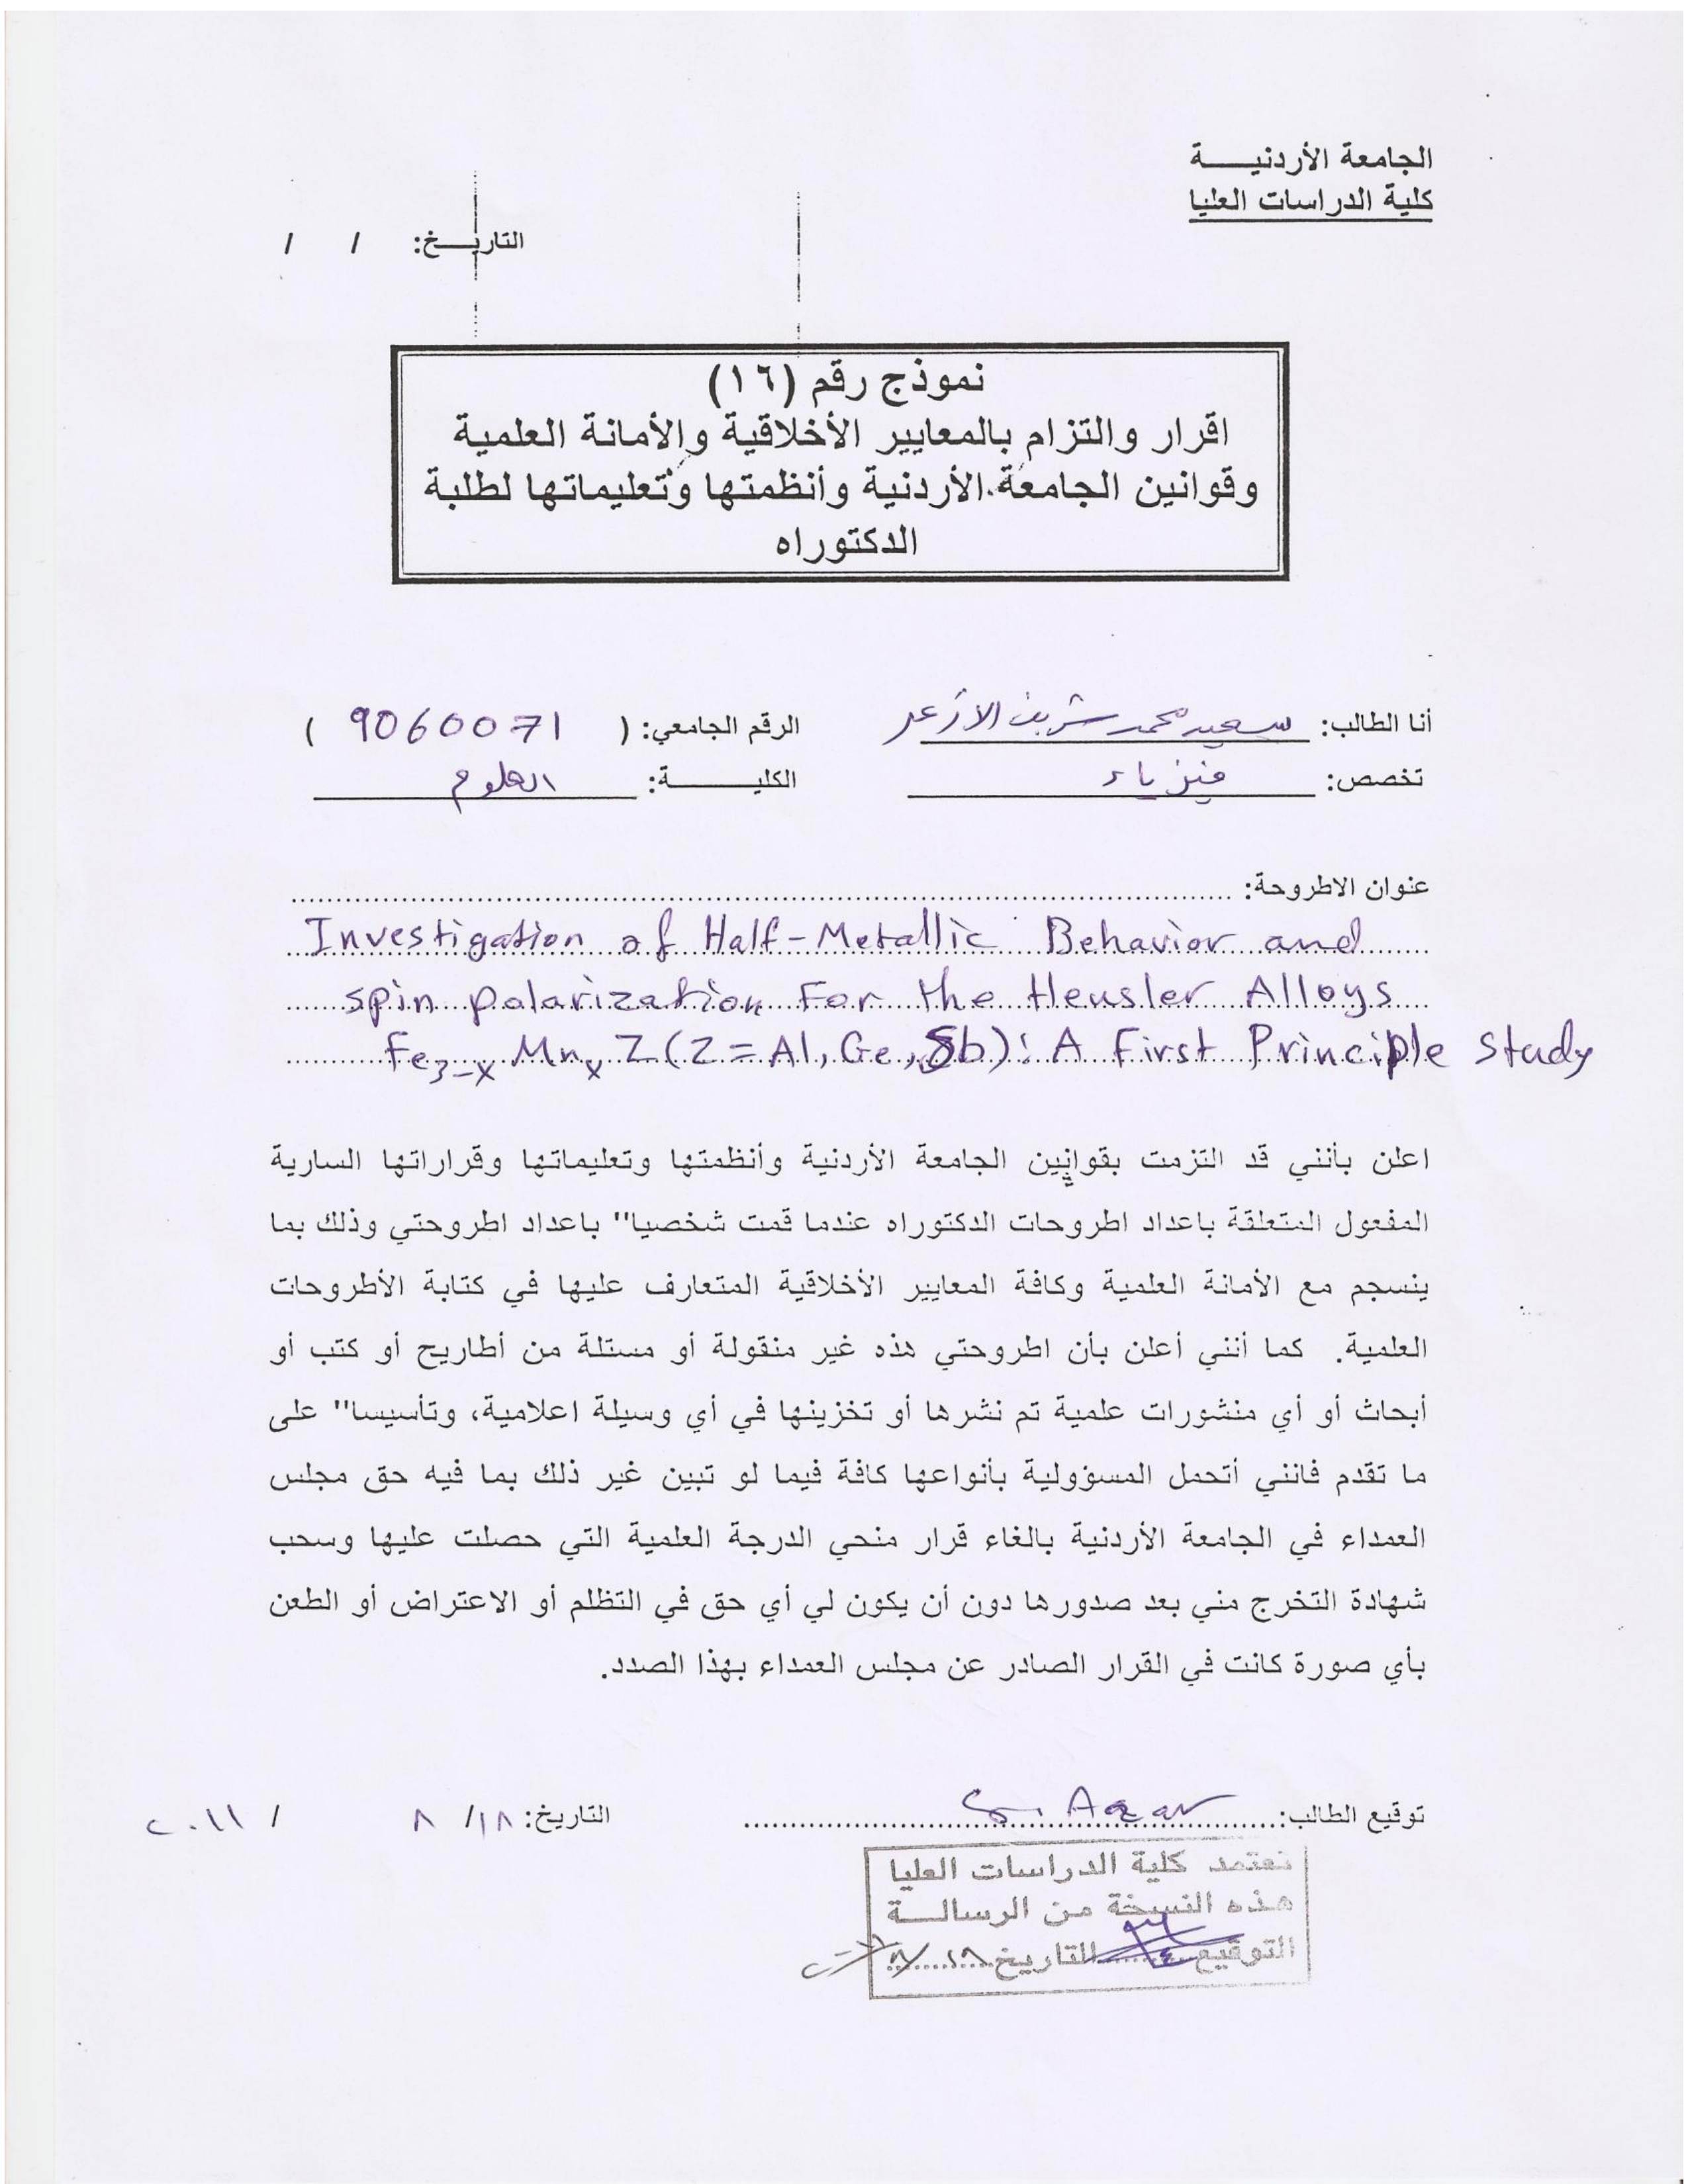 الجامعة الأردنيـــــة
كلية الدراسات العليا
التاريـــخ: / /
نموذج رقم (١٦)
اقرار والتزام بالمعايير الأخلاقية والأمانة العلمية
وقوانين الجامعة الأردنية وأنظمتها وتعليماتها لطلبة
الدكتوراه
أنا الطالب: سعيد محمد شريف الازعر الرقم الجامعي: ( 9060071 )
تخصص: فيزياء الكليـــــــة: العلوم
عنوان الاطروحة:
Investigation of Half-Metallic Behavior and
spin polarization For the Heusler Alloys
Fe3-x Mnx Z (Z = Al, Ge, Sb): A First Principle study
اعلن بأنني قد التزمت بقوانين الجامعة الأردنية وأنظمتها وتعليماتها وقراراتها السارية
المفعول المتعلقة باعداد اطروحات الدكتوراه عندما قمت شخصيا" باعداد اطروحتي وذلك بما
ينسجم مع الأمانة العلمية وكافة المعايير الأخلاقية المتعارف عليها في كتابة الأطروحات
العلمية. كما أنني أعلن بأن اطروحتي هذه غير منقولة أو مستلة من أطاريح أو كتب أو
أبحاث أو أي منشورات علمية تم نشرها أو تخزينها في أي وسيلة اعلامية، وتأسيسا" على
ما تقدم فانني أتحمل المسؤولية بأنواعها كافة فيما لو تبين غير ذلك بما فيه حق مجلس
العمداء في الجامعة الأردنية بالغاء قرار منحي الدرجة العلمية التي حصلت عليها وسحب
شهادة التخرج مني بعد صدورها دون أن يكون لي أي حق في التظلم أو الاعتراض أو الطعن
بأي صورة كانت في القرار الصادر عن مجلس العمداء بهذا الصدد.
توقيع الطالب: S. Azar التاريخ: ١٨/ ٨ / ٢٠١١
تعتمد كلية الدراسات العليا
هذه النسخة من الرسالـــة
التوقيع التاريخ ١٨/٨